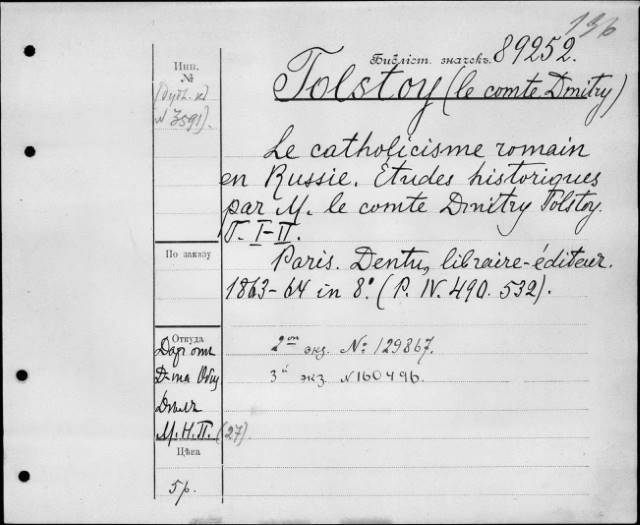 136
Библіот. значекъ. 89252.
Tolstoy (le comte Dmitry)
Инв.
№
(Дубл. к)
N 3591).
Le catholicisme romain
en Russie. Études historiques
par M. le comte Dmitry Tolstoy.
T. I-II.
По заказу
Paris. Dentu, libraire-éditeur.
1863-64 in 8°. (P. IV. 490. 532).
Откуда
Даръ отъ
Д-та Общ
Дѣлъ
М.Н.П. (27).
2ой экз. № 129867.
3й экз. N160496.
Цѣна
5р.